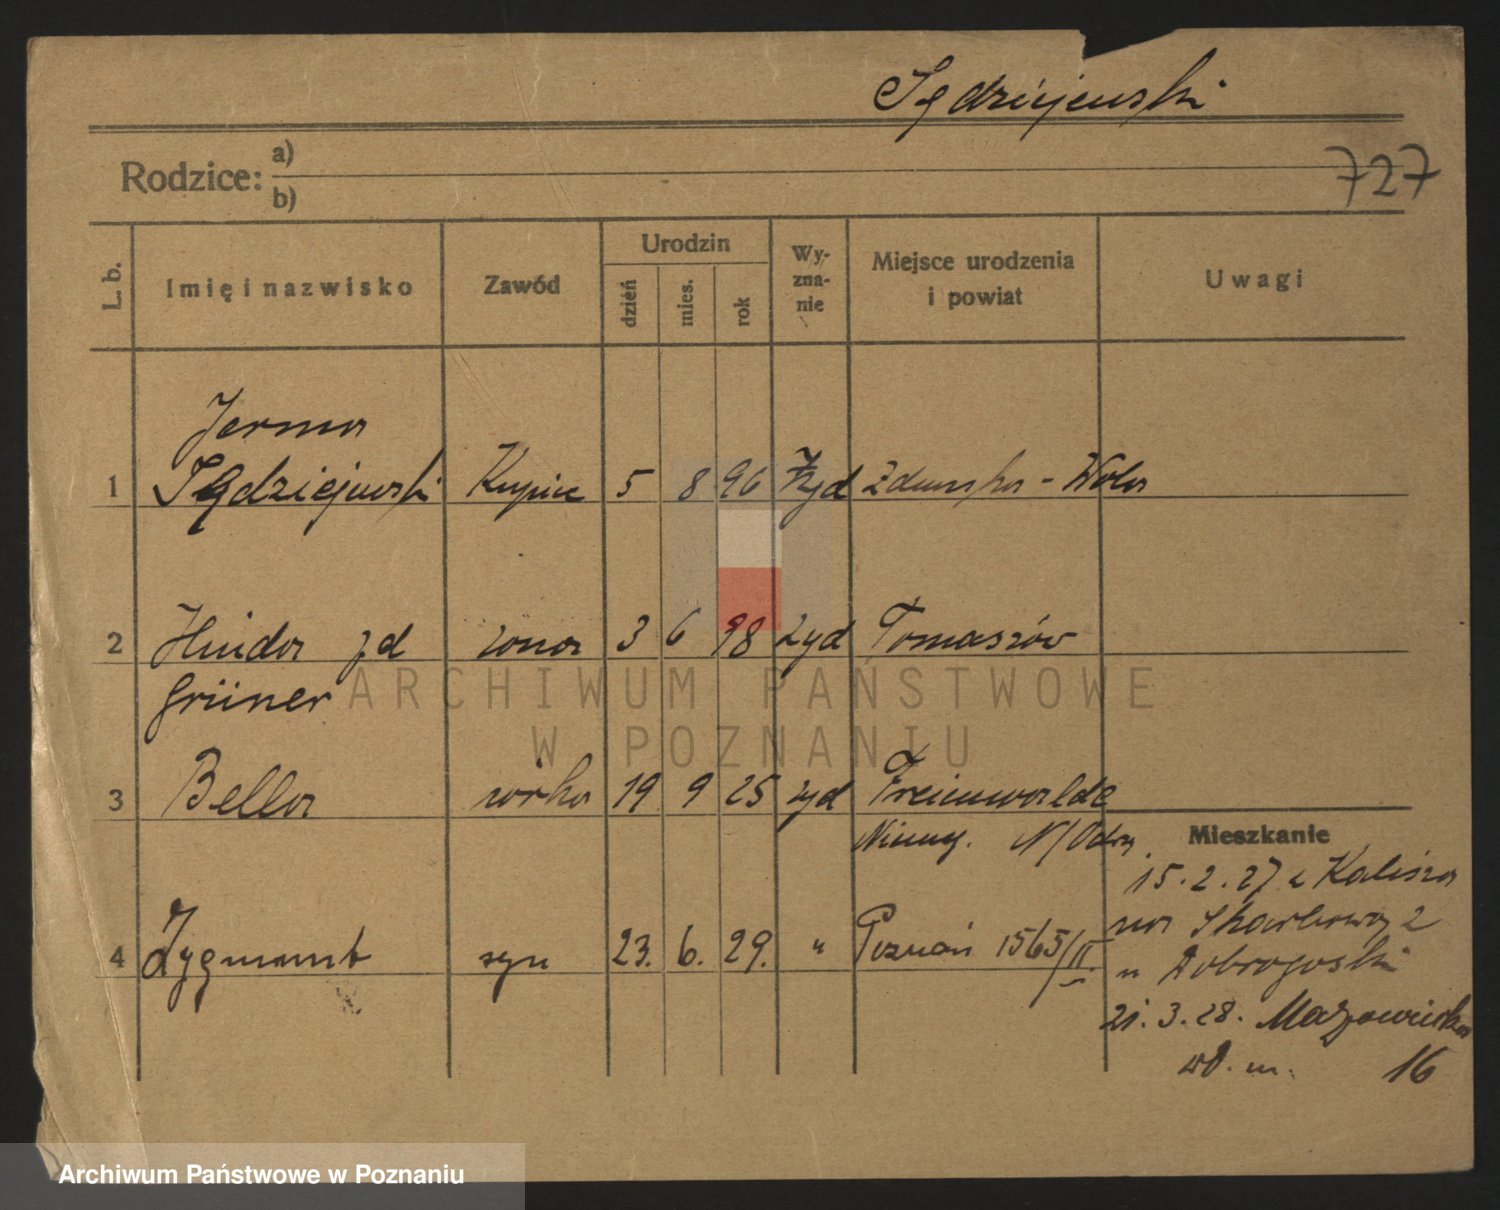 Sędziejewski
727
Rodzice: a)
b)
L. b. Imię i nazwisko Zawód Urodzin dzień mies. rok Wyznanie Miejsce urodzenia i powiat Uwagi
Jerma
1 Sędziejewski Kupiec 5 8 96 Żyd Zduńska - Wola
2 Hinda zd żona 3 6 98 żyd Tomaszów
Grüner
3 Bella córka 19 9 25 żyd Freienwalde
Niemcy. N/Odrą
Mieszkanie
15.2.27 z Kalisza
na Skarbowa 2
4 Zygmunt syn 23. 6. 29. " Poznań 1565/II
u Dobrogoski
21.3.28. Mazowiecka
wł. m. 16
ARCHIWUM PAŃSTWOWE
W POZNANIU
Archiwum Państwowe w Poznaniu